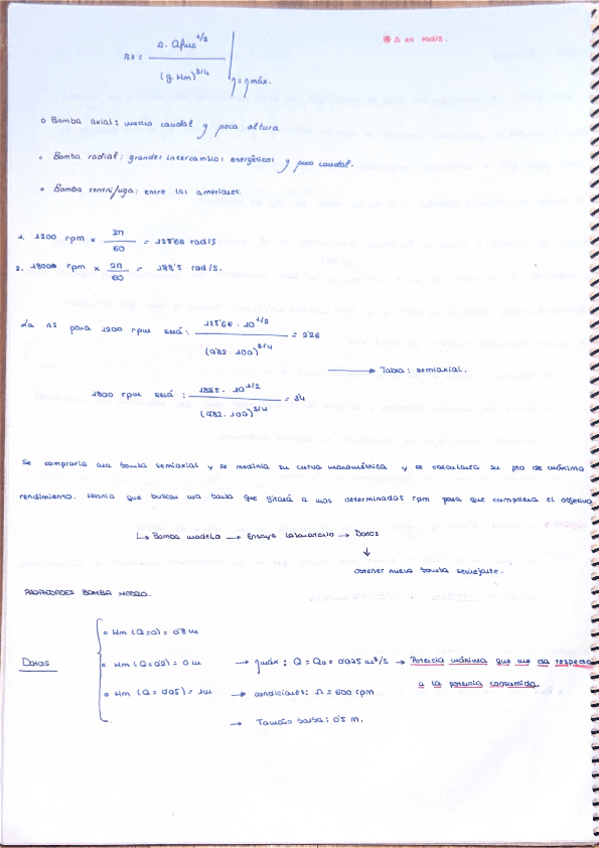 ns = Ω. Qηmax^1/2 / (g. Hm)^3/4 | η = ηmáx.
⊛ Ω en rad/s.
o Bomba axial: mucho caudal y poca altura
• Bomba radial: grandes intercambios energéticos y poco caudal.
• Bomba centrífuga: entre las anteriores.
1. 1200 rpm × 2π/60 = 125'66 rad/s
2. 1800 rpm × 2π/60 = 188'5 rad/s.
La ns para 1200 rpm será: 125'66 · 10^1/2 / (9'82 · 100)^3/4 = 2'26
→ Tabla: semiaxial.
1800 rpm será: 188'5 · 10^1/2 / (9'82 · 100)^3/4 = 3'4
Se compraría una bomba semiaxial y se mediría su curva manométrica y se calcularía su pto de máximo
rendimiento. Habría que buscar una bomba que girará a unos determinadas rpm para que cumpliera el objetivo
↳ Bomba modelo → Ensayo laboratorio → Datos
↓
obtener nueva bomba semejante.
PROPIEDADES BOMBA MODELO.
Datos
o Hm (Q=0) = 0'8 m
o Hm (Q=0'2) = 0 m → ηmáx: Q = Q0 = 0'075 m³/s → Potencia máxima que me da respecto
a la potencia consumida.
o Hm (Q = 0'05) = 1m → condiciones: Ω = 600 rpm
→ Tamaño bomba: 0'5 m.